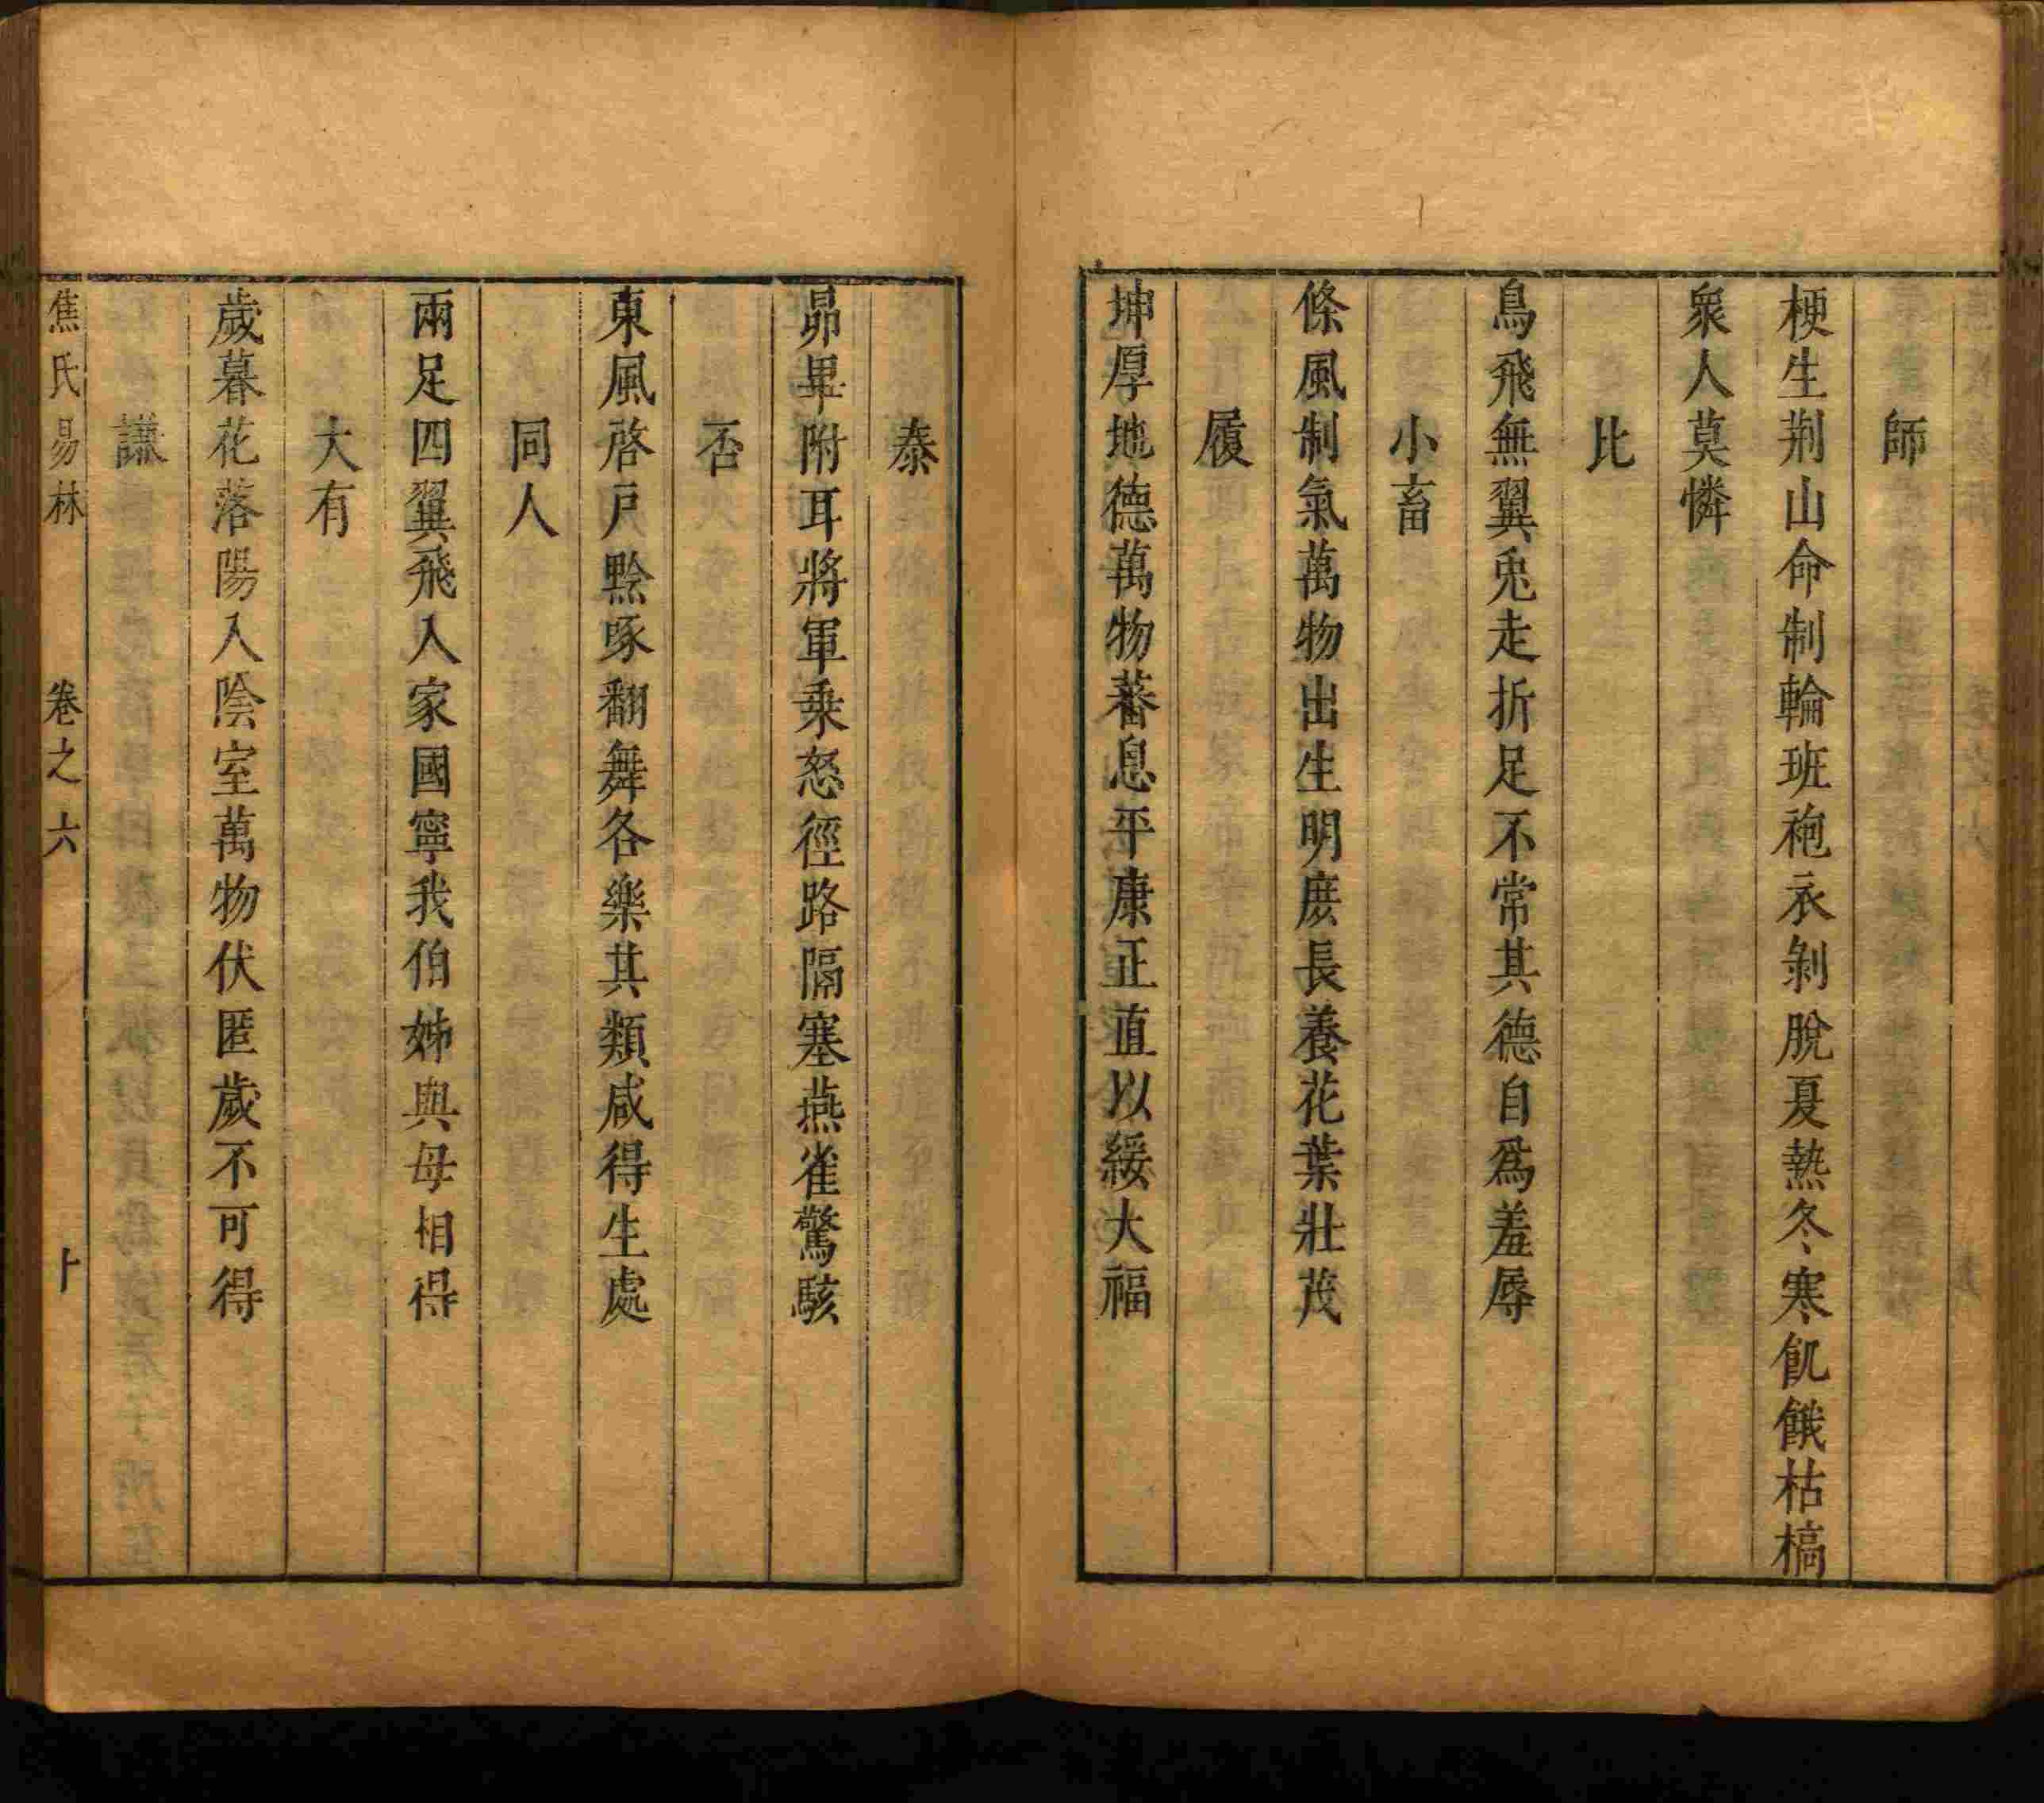 師
梗生荆山命制輪班袍衣剝脫夏熱冬寒飢餓枯槁
衆人莫憐
比
鳥飛無翼兎走折足不常其德自爲羞辱
小畜
條風制氣萬物出生明庶長養花葉壯茂
履
坤厚地德萬物蕃息平康正直以綏大福
泰
昴畢附耳將軍乗怒徑路隔塞燕雀驚駭
否
東風啓戸黔啄翻舞各樂其類咸得生處
同人
兩足四翼飛入家國寧我伯姊與母相得
大有
歲暮花落陽入陰室萬物伏匿歲不可得
謙
焦氏易林 卷之六 十